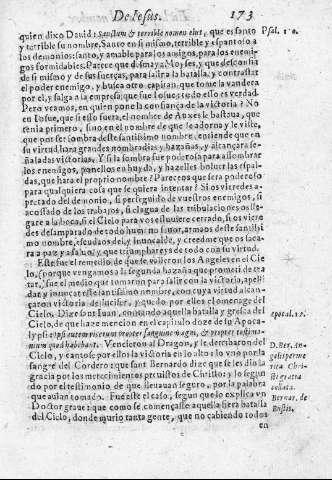 De Iesus. 173
quien dixo Dauid: Sanctum & terrible nomen eius, que es santo Psal. 110.
y terrible su nombre. Santo en si mismo, terrible y espantoso a
los demonios: santo, y amable para los amigos, para los enemi-
gos formidable. Parece que desmaya Moyses, y que desconfia
de si mismo y de sus fuerças, para la batalla, y contrastar
el poder enemigo, y busca otro capitan, que tome la vandera
por el, y salga a la empresa: que fue Iosue: todo ello es verdad.
Pero veamos, en quien pone la confiança de la victoria? No
en Iosue, que si esso fuera, el nombre de Auxes le bastaua, que
tenia primero, sino en el nombre de que le adorna y le viste,
que por ser sombra deste santissimo nombre, entiende que en
su virtud hara grandes nombradias y hazañas, y alcançara se-
ñaladas victorias. Y si la sombra fue poderosa para assombrar
los enemigos, ponellos en huyda, y hazelles boluer las espal-
das, que hara el proprio nombre? Pareceos que sera poderoso
para qualquiera cosa que se quiera intentar? Si os vieredes a-
pretado del demonio, si perseguido de vuestros enemigos, si
acossado de los trabajos, si el agua de las tribulaciones os lle-
gare a la boca, si el Cielo para vos estuuiere cerrado, si os viere
des desamparado de todo humano fauor, armaos deste santissi
mo nombre, escudaos del, y inuocalde, y creedme que os saca-
ra a paz y a saluo, y que triumphareys de todo con su virtud.
Este fue el remedio de que se valieron los Angeles en el Cie
lo, (porque vengamos a la segunda hazaña que prometi de tra
tar, fue el medio que tomaron para salir con la victoria, apelli
dar y inuocar este santissimo nombre, con cuya virtud alcan-
çaron victoria de lucifer, y quedo por ellos el omenage del
Cielo. Dize san Iuan, contando aquella batalla y gresca del Apocal. 12.
Cielo, de que haze mencion en el capitulo doze de su Apoca-
lypsi
Vencieron al Dragon, y le derribaron del D. Ber.
Cielo, y cantose por ellos la victoria en lo alto: lo vno por la
sangre del Cordero: que san Bernardo dize que se les dio la
gracia por los merecimientos preuistos de Christo: y lo segun
do por el testimonio de que lleuauan seguro, por la palabra
que auian tomado. Fue este el caso, segun que lo explica vn Bernar. de
Doctor graue: que como se començasse aquella fiera batalla Bustis.
del Cielo, donde murio tanta gente, que no cabiendo todos
en